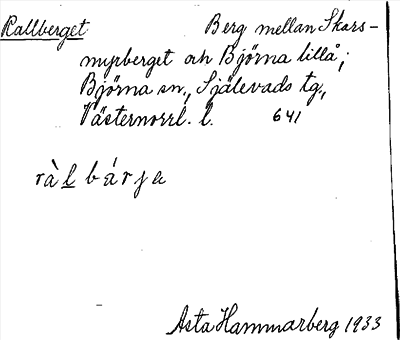 Rallberget Berg mellan Skars-
mypberget och Björna lillå;
Björna sn., Själevads tg.,
Västernorrl. l. 641
ràl bárja
Asta Hammarberg 1933